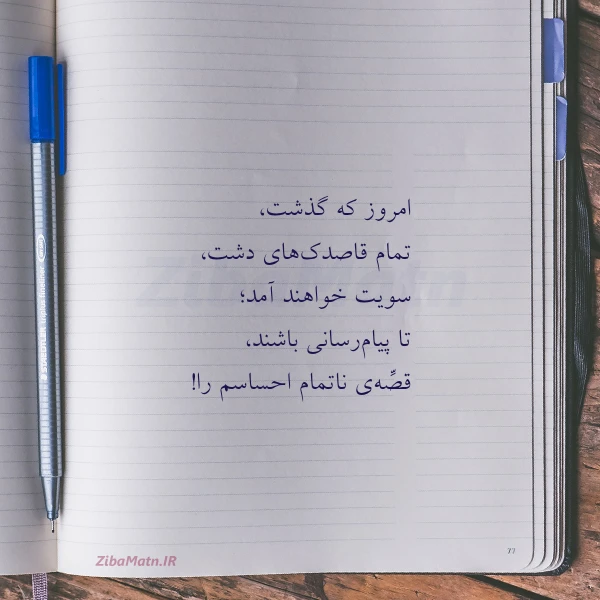 امروز که گذشت،
تمام قاصدک‌های دشت،
سویت خواهند آمد؛
تا پیام‌رسانی باشند،
قصّه‌ی ناتمام احساسم را!
ZibaMatn.IR
ZibaMatn
77